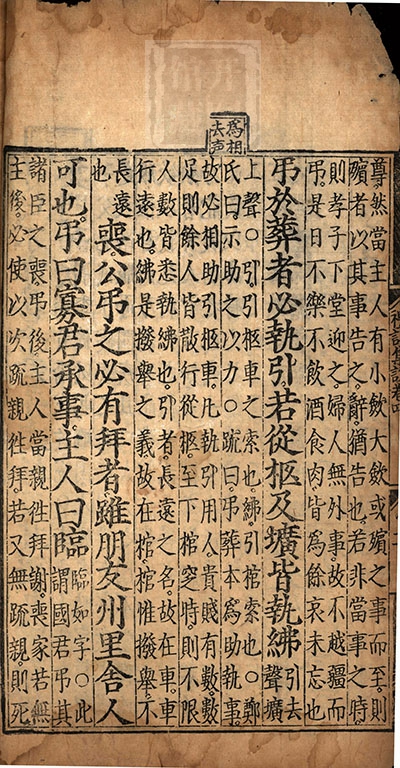 爲相
去声
尊。然當主人有小斂大斂或殯之事而至。則
殯者以其事告之。辭猶告也。若非當事之時。
則孝子下堂迎之。婦人無外事故不越疆而
弔。是日不樂不飲酒食肉皆爲餘哀未忘也
弔於葬者必執引若從柩及壙皆執紼引去
聲壙
上聲○引引柩車之索也紼引棺索也○鄭
氏曰示助之以力○䟽曰弔葬本爲助執事。
故必相助引柩車。凡執引用人貴賤有數數
足則餘人皆散行從柩。至下棺窆時。則不限
人數皆悉執紼也。引者長遠之名。故在車。車
行遠也。紼是撥舉之義故在棺。棺惟撥舉不
長遠
也
喪。公弔之必有拜者。雖朋友州里舍人
可也。弔曰寡君承事。主人曰臨臨如字○此
謂國君弔其
諸臣之喪。弔後。主人當親徃拜謝。喪家若無
主後。必使以次䟽親徃拜。若又無䟽親。則死